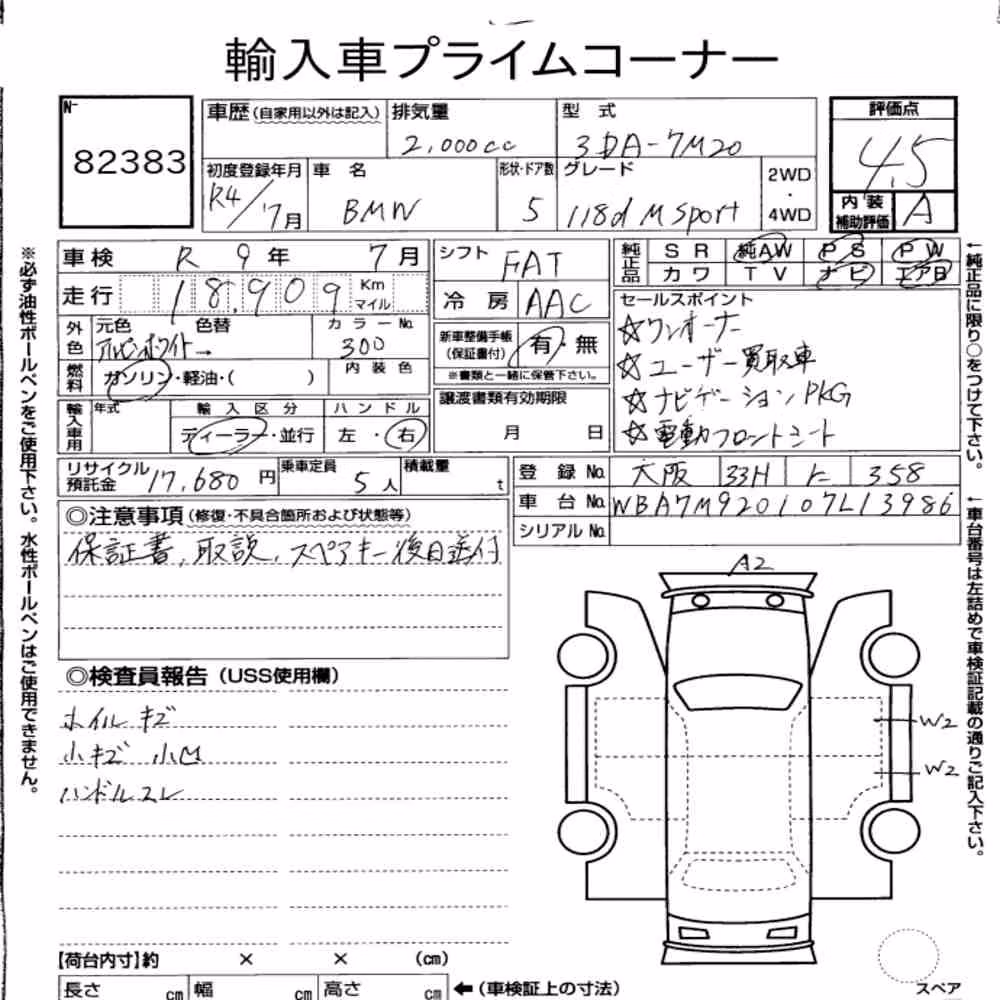 輸入車プライムコーナー
N-
82383
車歴(自家用以外は記入)
排気量
2,000cc
型 式
3DA-7M20
評価点
4.5
初度登録年月
R4/7月
車 名
BMW
形状・ドア数
5
グレード
118d M sport
2WD
・
4WD
内 装
補助評価
A
※必ず油性ボールペンをご使用下さい。水性ボールペンはご使用できません。
車検 R 9年 7月
走行 18,909 Km
マイル
シフト FAT
冷 房 AAC
純正品 SR 純AW PS PW
カワ TV ナビ エアB
外色
元色
アルピンホワイト
色替
→
カラーNo.
300
燃料
ガソリン・軽油・( )
内 装 色
新車整備手帳
(保証書付)
有・無
※書類と一緒に保管下さい。
セールスポイント
☆ワンオーナー
☆ユーザー買取車
☆ナビゲーションPKG
☆電動フロントシート
輸入車用
年式
輸 入 区 分
ディーラー・並行
ハ ン ド ル
左・右
譲渡書類有効期限
月 日
リサイクル
預託金
17,680 円
乗車定員
5人
積載量
t
登 録 No. 大阪 33H に 358
車 台 No. WBA7M920107L13986
シリアル No.
←純正品に限り○をつけて下さい。
←車台番号は左詰めで車検証記載の通りご記入下さい。
◎注意事項(修復・不具合箇所および状態等)
保証書、取説、スペアキー後日送付
A2
◎検査員報告(USS使用欄)
ホイルキズ
小キズ 小凹
ハンドルスレ
W2
W2
【荷台内寸】約 × × (cm)
長さ cm 幅 cm 高さ cm ←(車検証上の寸法)
スペア